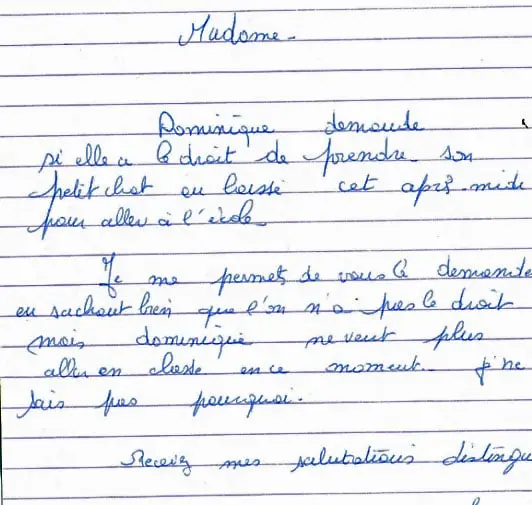 Madame -
Dominique demande
si elle a le droit de prendre son
petit chat en classe cet après-midi
pour aller à l'école
Je me permet de vous le demande
en sachant bien que l'on n'a pas le droit
mais dominique ne veut plus
aller en classe en ce moment. je ne
sais pas pourquoi.
Recevez mes salutations distingu